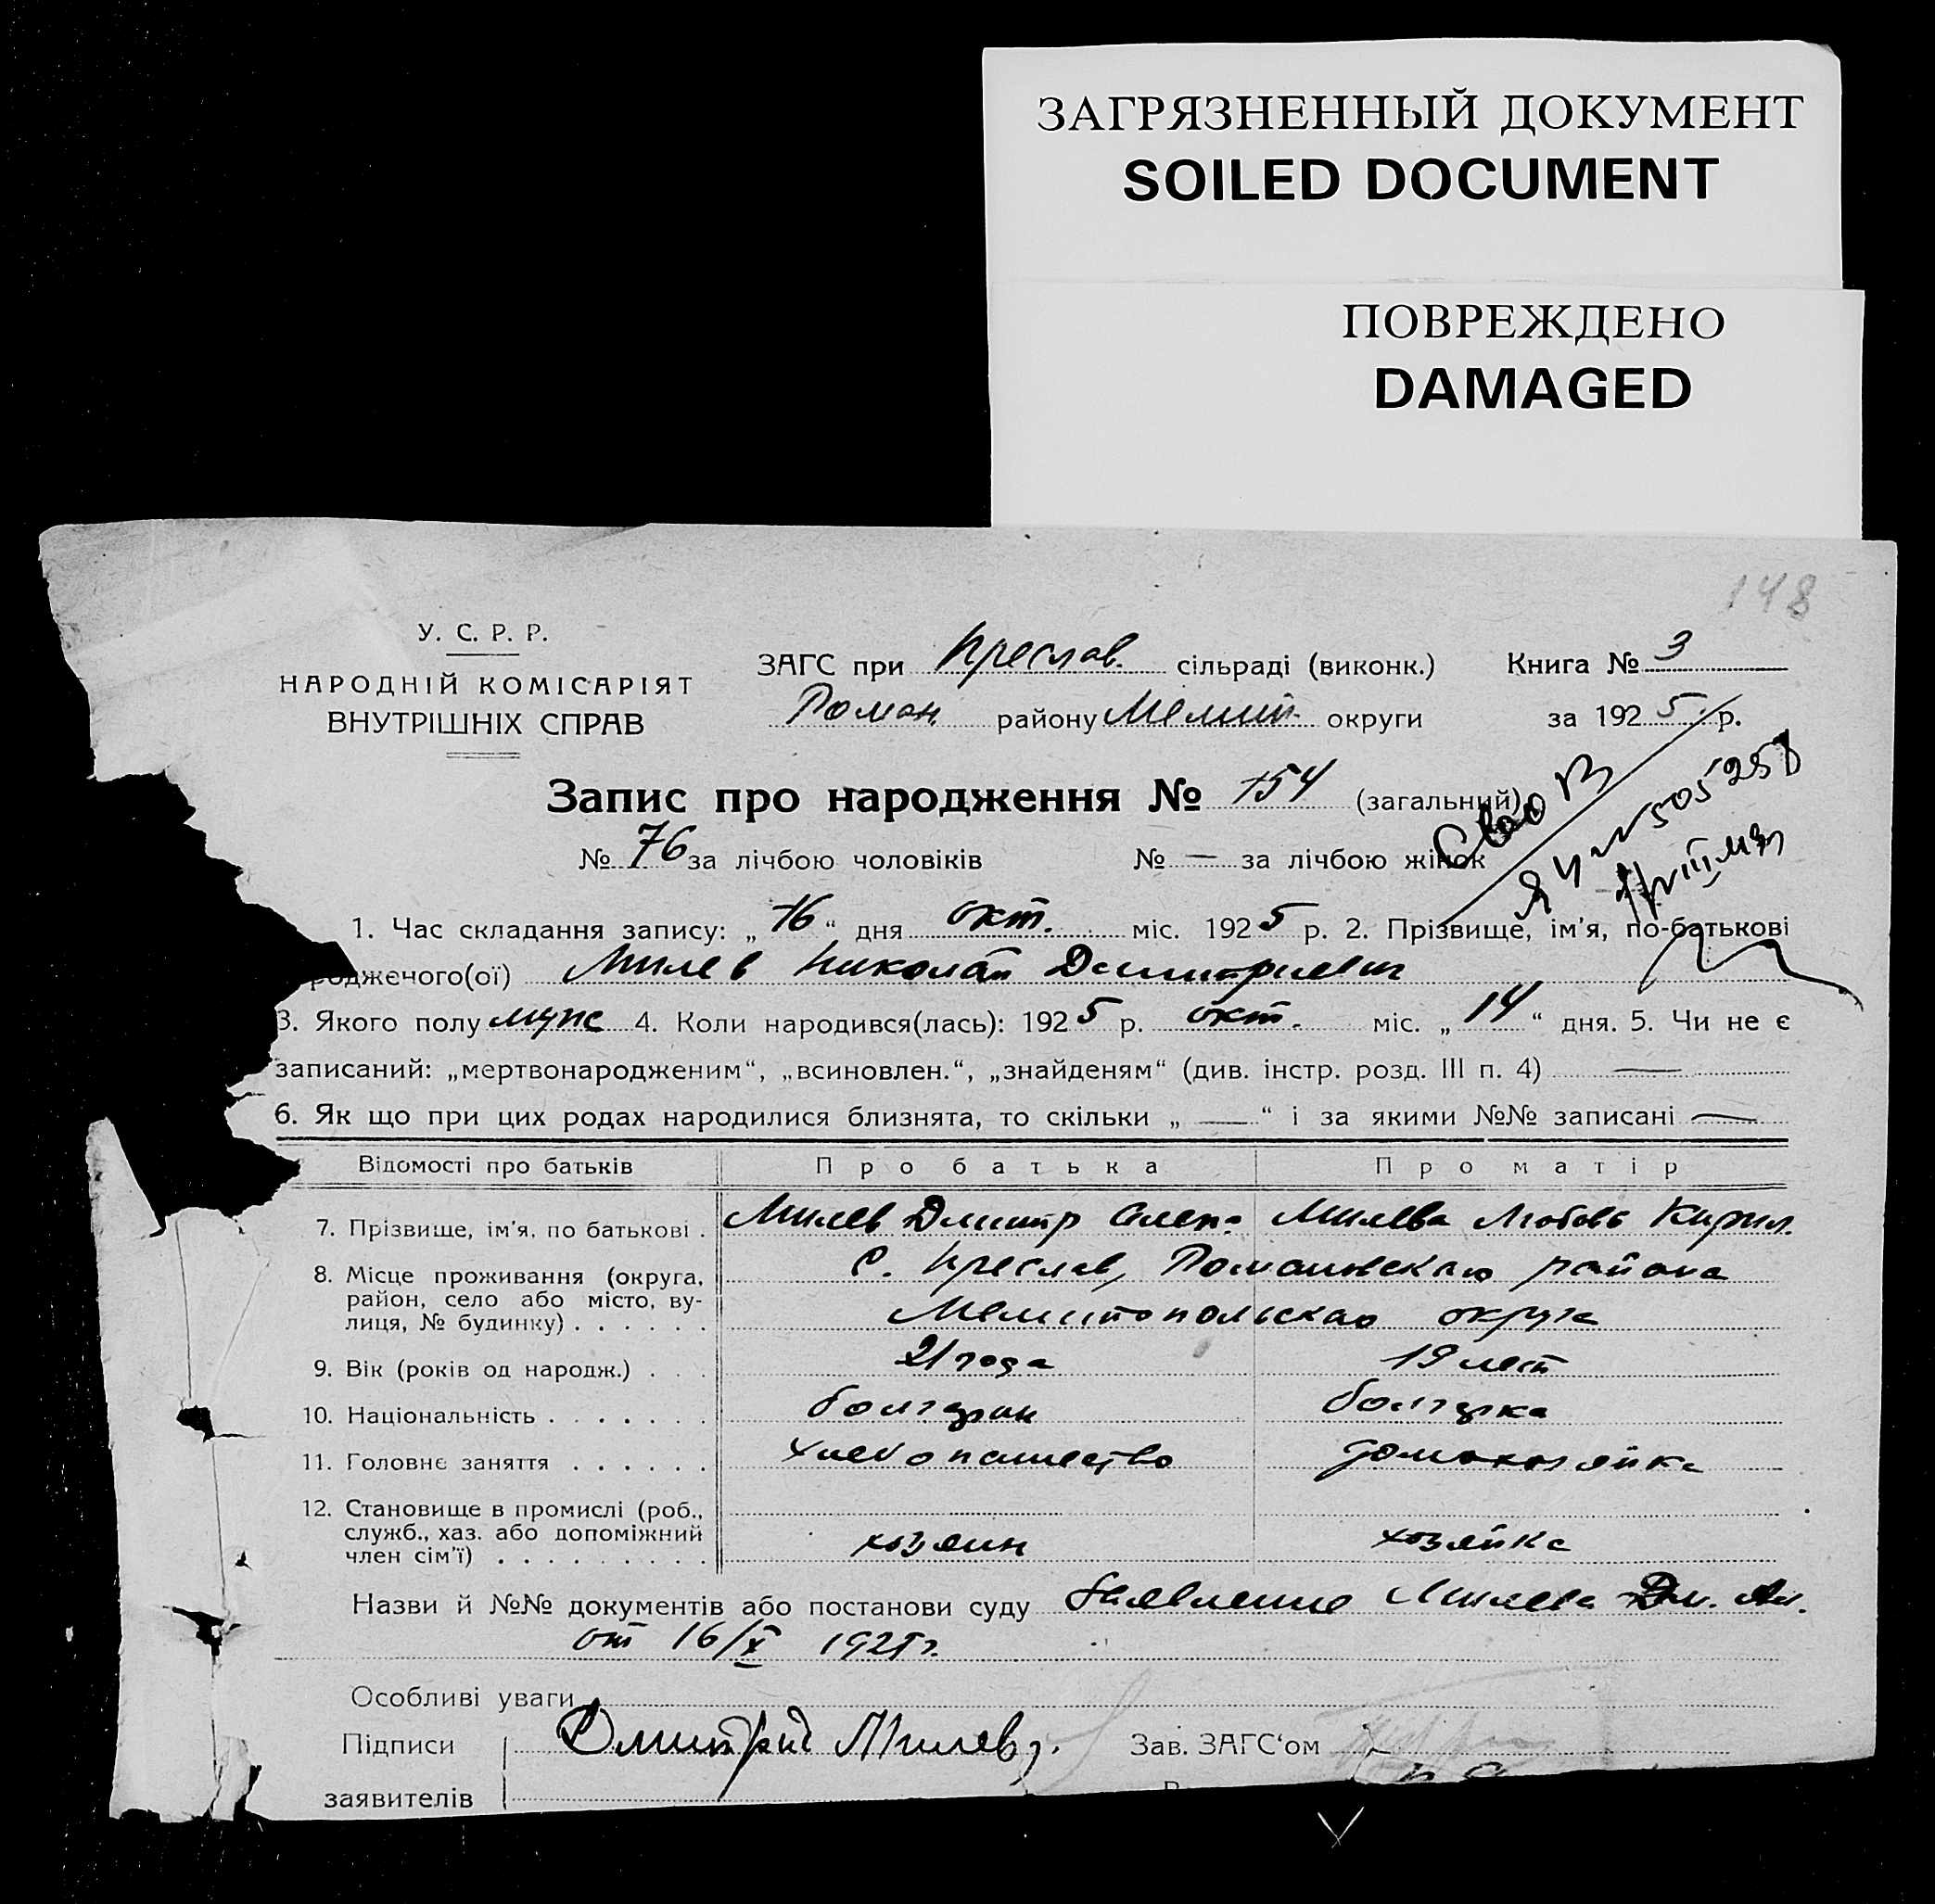 ЗАГРЯЗНЕННЫЙ ДОКУМЕНТ
SOILED DOCUMENT
ПОВРЕЖДЕНО
DAMAGED
148
У. С. Р. Р.
НАРОДНІЙ КОМІСАРІЯТ
ВНУТРІШНІХ СПРАВ
ЗАГС при Преслав. сільраді (виконк.) Книга № 3
Роман району Мелит. округи за 1925 р.
Запис про народження № 154 (загальний)
№ 76 за лічбою чоловіків № — за лічбою жінок
Св во
ЯЧ № 505258
1. Час складання запису: „16“ дня окт. міс. 1925 р. 2. Прізвище, ім'я, по-батькові
родженого(ої) Милев Николай Димитриевич
3. Якого полу муж 4. Коли народився(лась): 1925 р. окт. міс. „14“ дня. 5. Чи не є
записаний: „мертвонародженим“, „всиновлен.“, „знайденям“ (див. інстр. розд. III п. 4) —
6. Як що при цих родах народилися близнята, то скільки „—“ і за якими №№ записані —
Відомості про батьків Про батька Про матір
7. Прізвище, ім'я, по батькові . Милев Дмитр Алек. Милева Любовь Кирил.
8. Місце проживання (округа, район, село або місто, ву- лиця, № будинку) . . . . . .
с. Преслав, Романовскаго района
Мелитопольскаго округа
9. Вік (років од народж.) . . . 21 года 19 лет
10. Національність . . . . . . . болгарин болгарка
11. Головнє заняття . . . . . . хлебопашество домохозяйка
12. Становище в промислі (роб.,
служб., хаз. або допоміжний
член сім'ї) . . . . . . . . . хозяин хозяйка
Назви й №№ документів або постанови суду Заявление Милева Дм. Ал.
от 16/X 1925 г.
Особливі уваги
Підписи Дмитрий Милев Зав. ЗАГС‘ом
заявителів